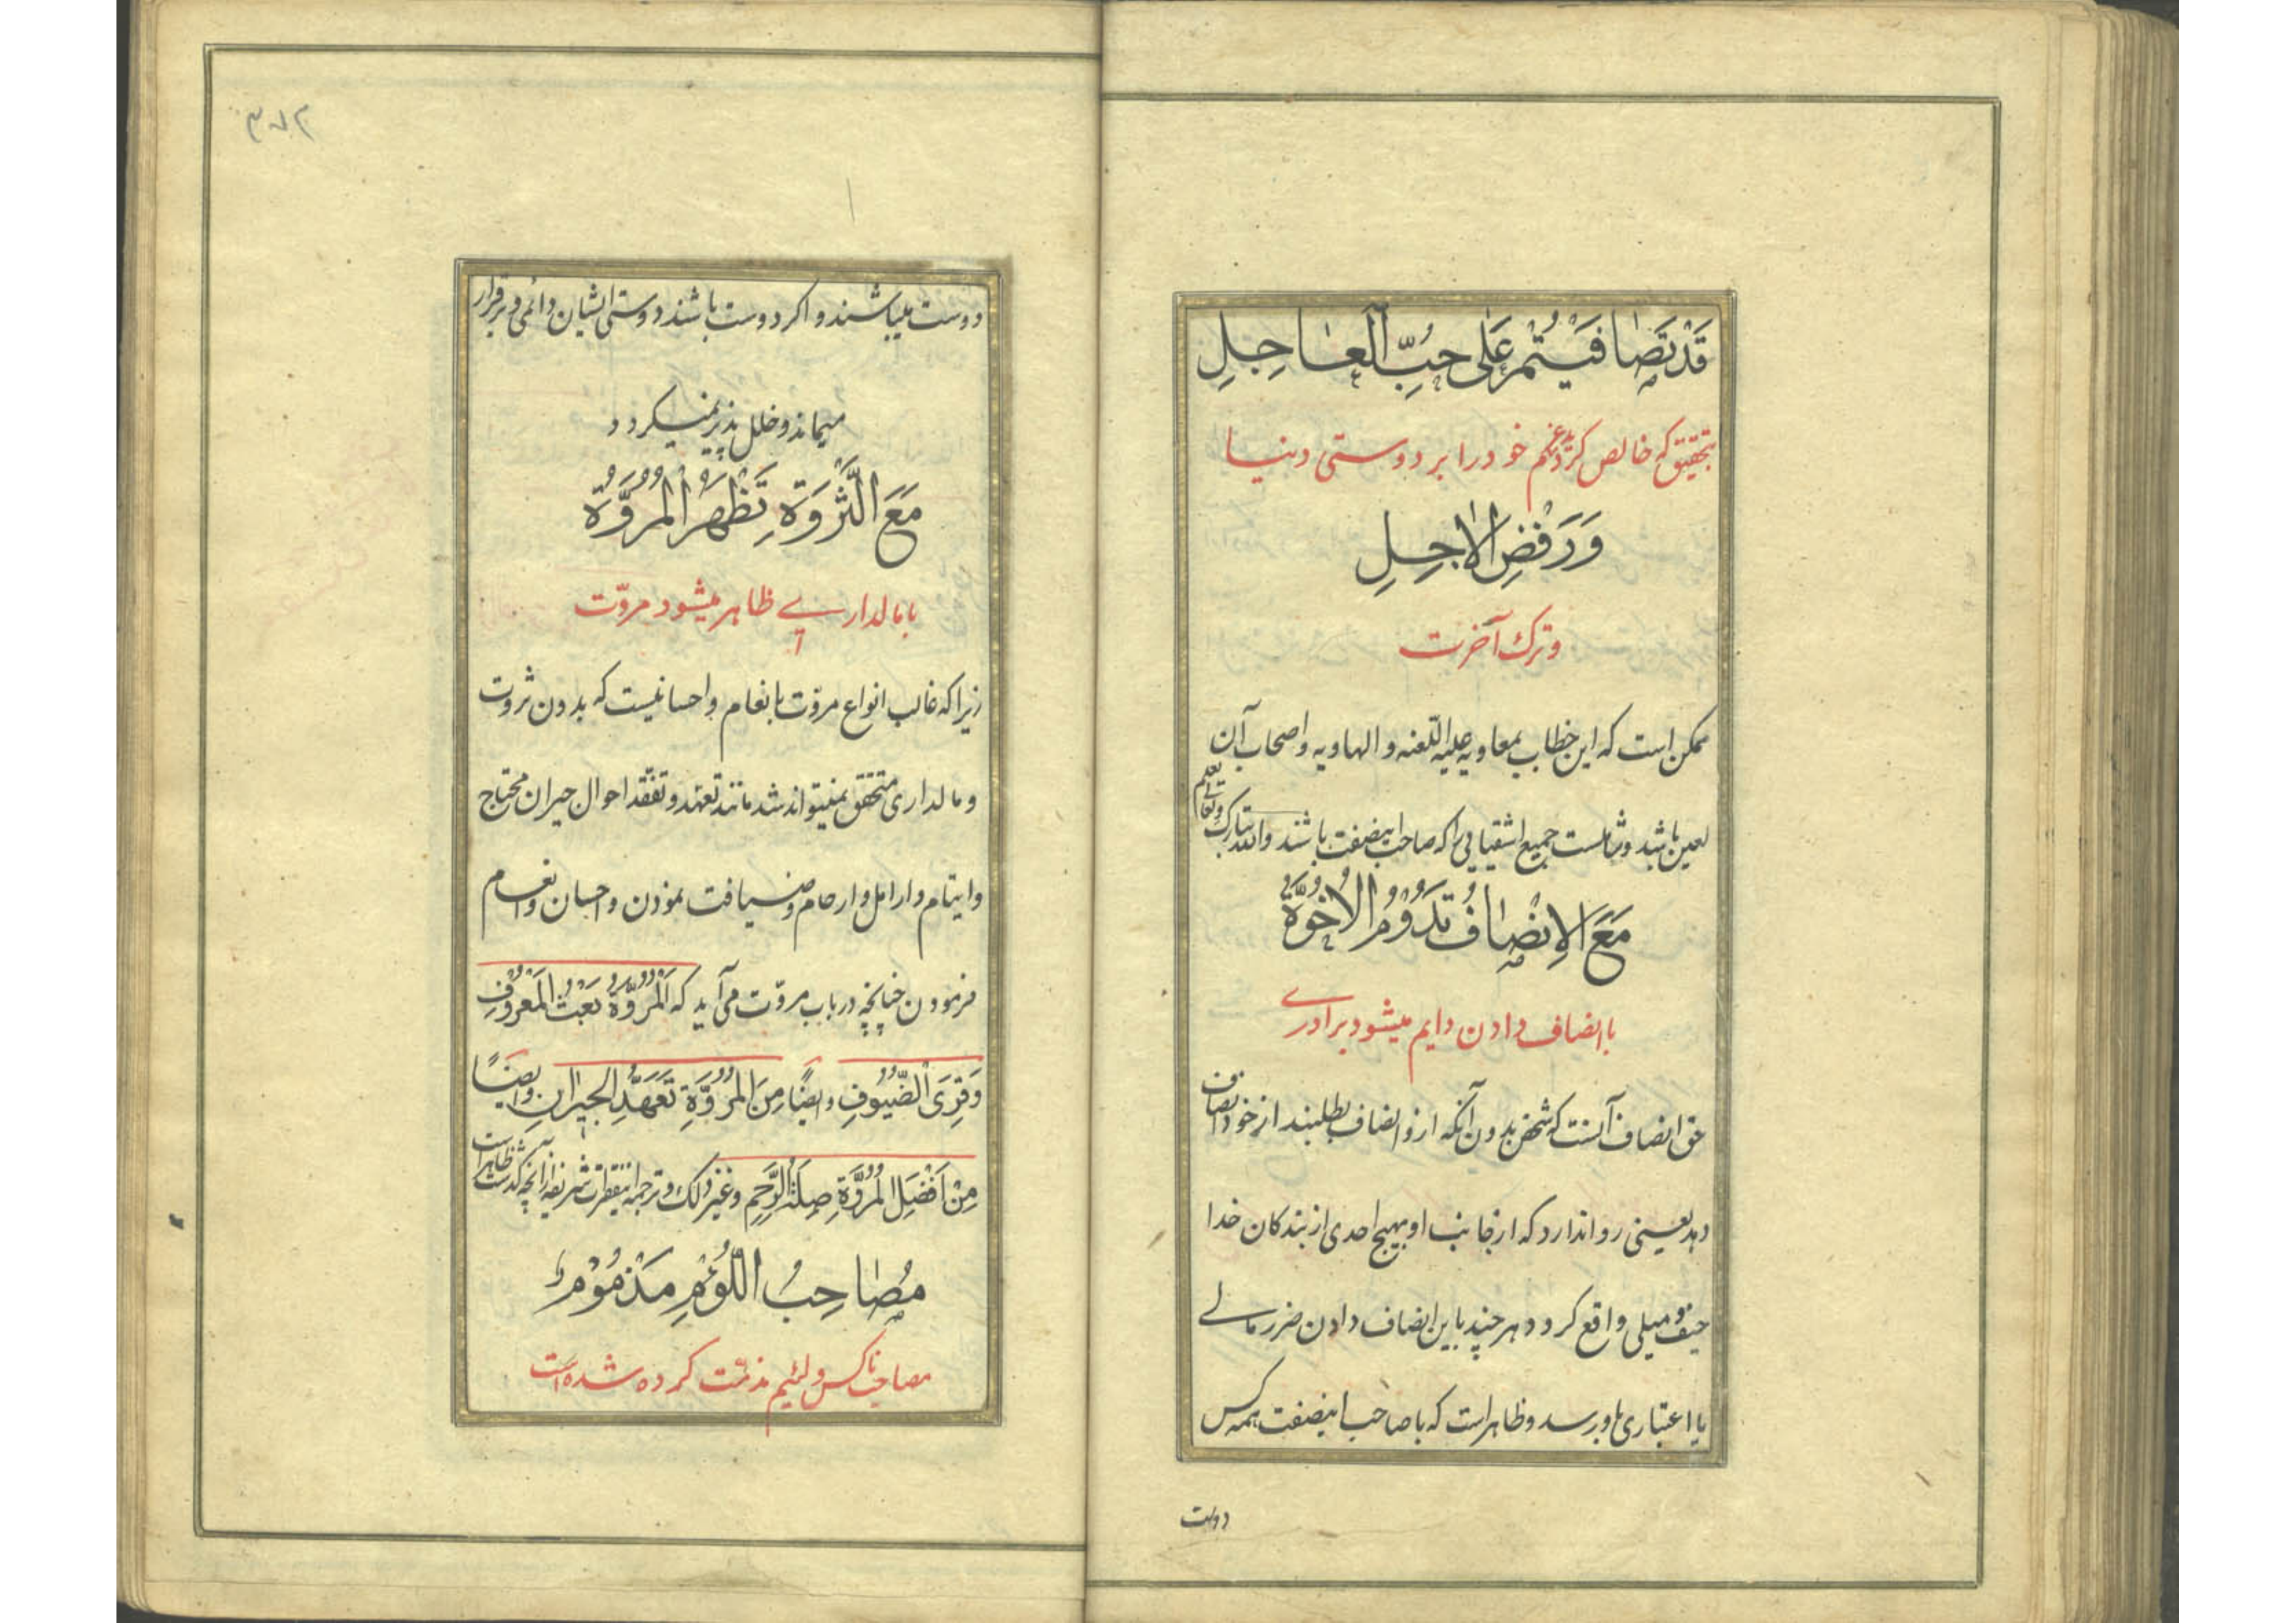 قَدْ تَصَافَيْتُمْ عَلَى حُبِّ الْعَاجِلِ
بتحقیق که خالص کرده‌اید خود را بر دوستی دنیا
وَرَفْضِ الْاجِلِ
و ترک آخرت
ممکن است که این خطاب بمعاویه علیه اللعنه و الهاویه و اصحاب آن
لعین باشد و شاملست جمیع اشقیایی را که صاحب اینصفت باشند والله تبارک و تعالی یعلم
مَعَ الْاِنْصَافِ تَدُوْمُ الْاُخُوَّةُ
با انصاف دادن دایم میشود برادرے
حق انصاف آنست که شخص بدون آنکه ازو انصاف بطلبند از خود انصاف
دهد یعنی روا ندارد که از جانب او بهیچ احدی از بندکان خدا
حیف و میلی واقع کردد هر چند باین انصاف دادن ضرر مالے
یا اعتباری باو برسد و ظاهر است که با صاحب اینصفت همه کس
دوست
دوست میباشند و اکر دوست باشند دوستی ایشان دائمی و برقرار
میماند و خلل پذیر نمیکردد
مَعَ الثَّرْوَةِ تَظْهَرُ الْمُرُوَّةُ
با مالدارے ظاهر میشود مروّت
زیرا که غالب انواع مروّت بانعام و احسانیست که بدون ثروت
و مالداری متحقق نمیتواند شد مانند تعهد و تفقد احوال جیران محتاج
و ایتام و ارامل و ارحام و ضیافت نمودن و احسان و انعام
فرمودن چنانچه در باب مروّت می‌آید که اَلْمُرُوَّةُ بَعْثُ الْمَعْرُوْفِ
وَقِرَى الضُّيُوْفِ و ایضًا مِنَ الْمُرُوَّةِ تَعَهُّدُ الْجِيْرَانِ و ایضًا
مِنْ اَفْضَلِ الْمُرُوَّةِ صِلَةُ الرَّحِمِ و غیر ذلک و ترجمه اینفقرات شریفه از آنچه کذشت ظاهر است
مُصَاحِبُ اللُّؤْمِ مَذْمُوْمٌ
مصاحب ناکس و لئیم مذمّت کرده شده است